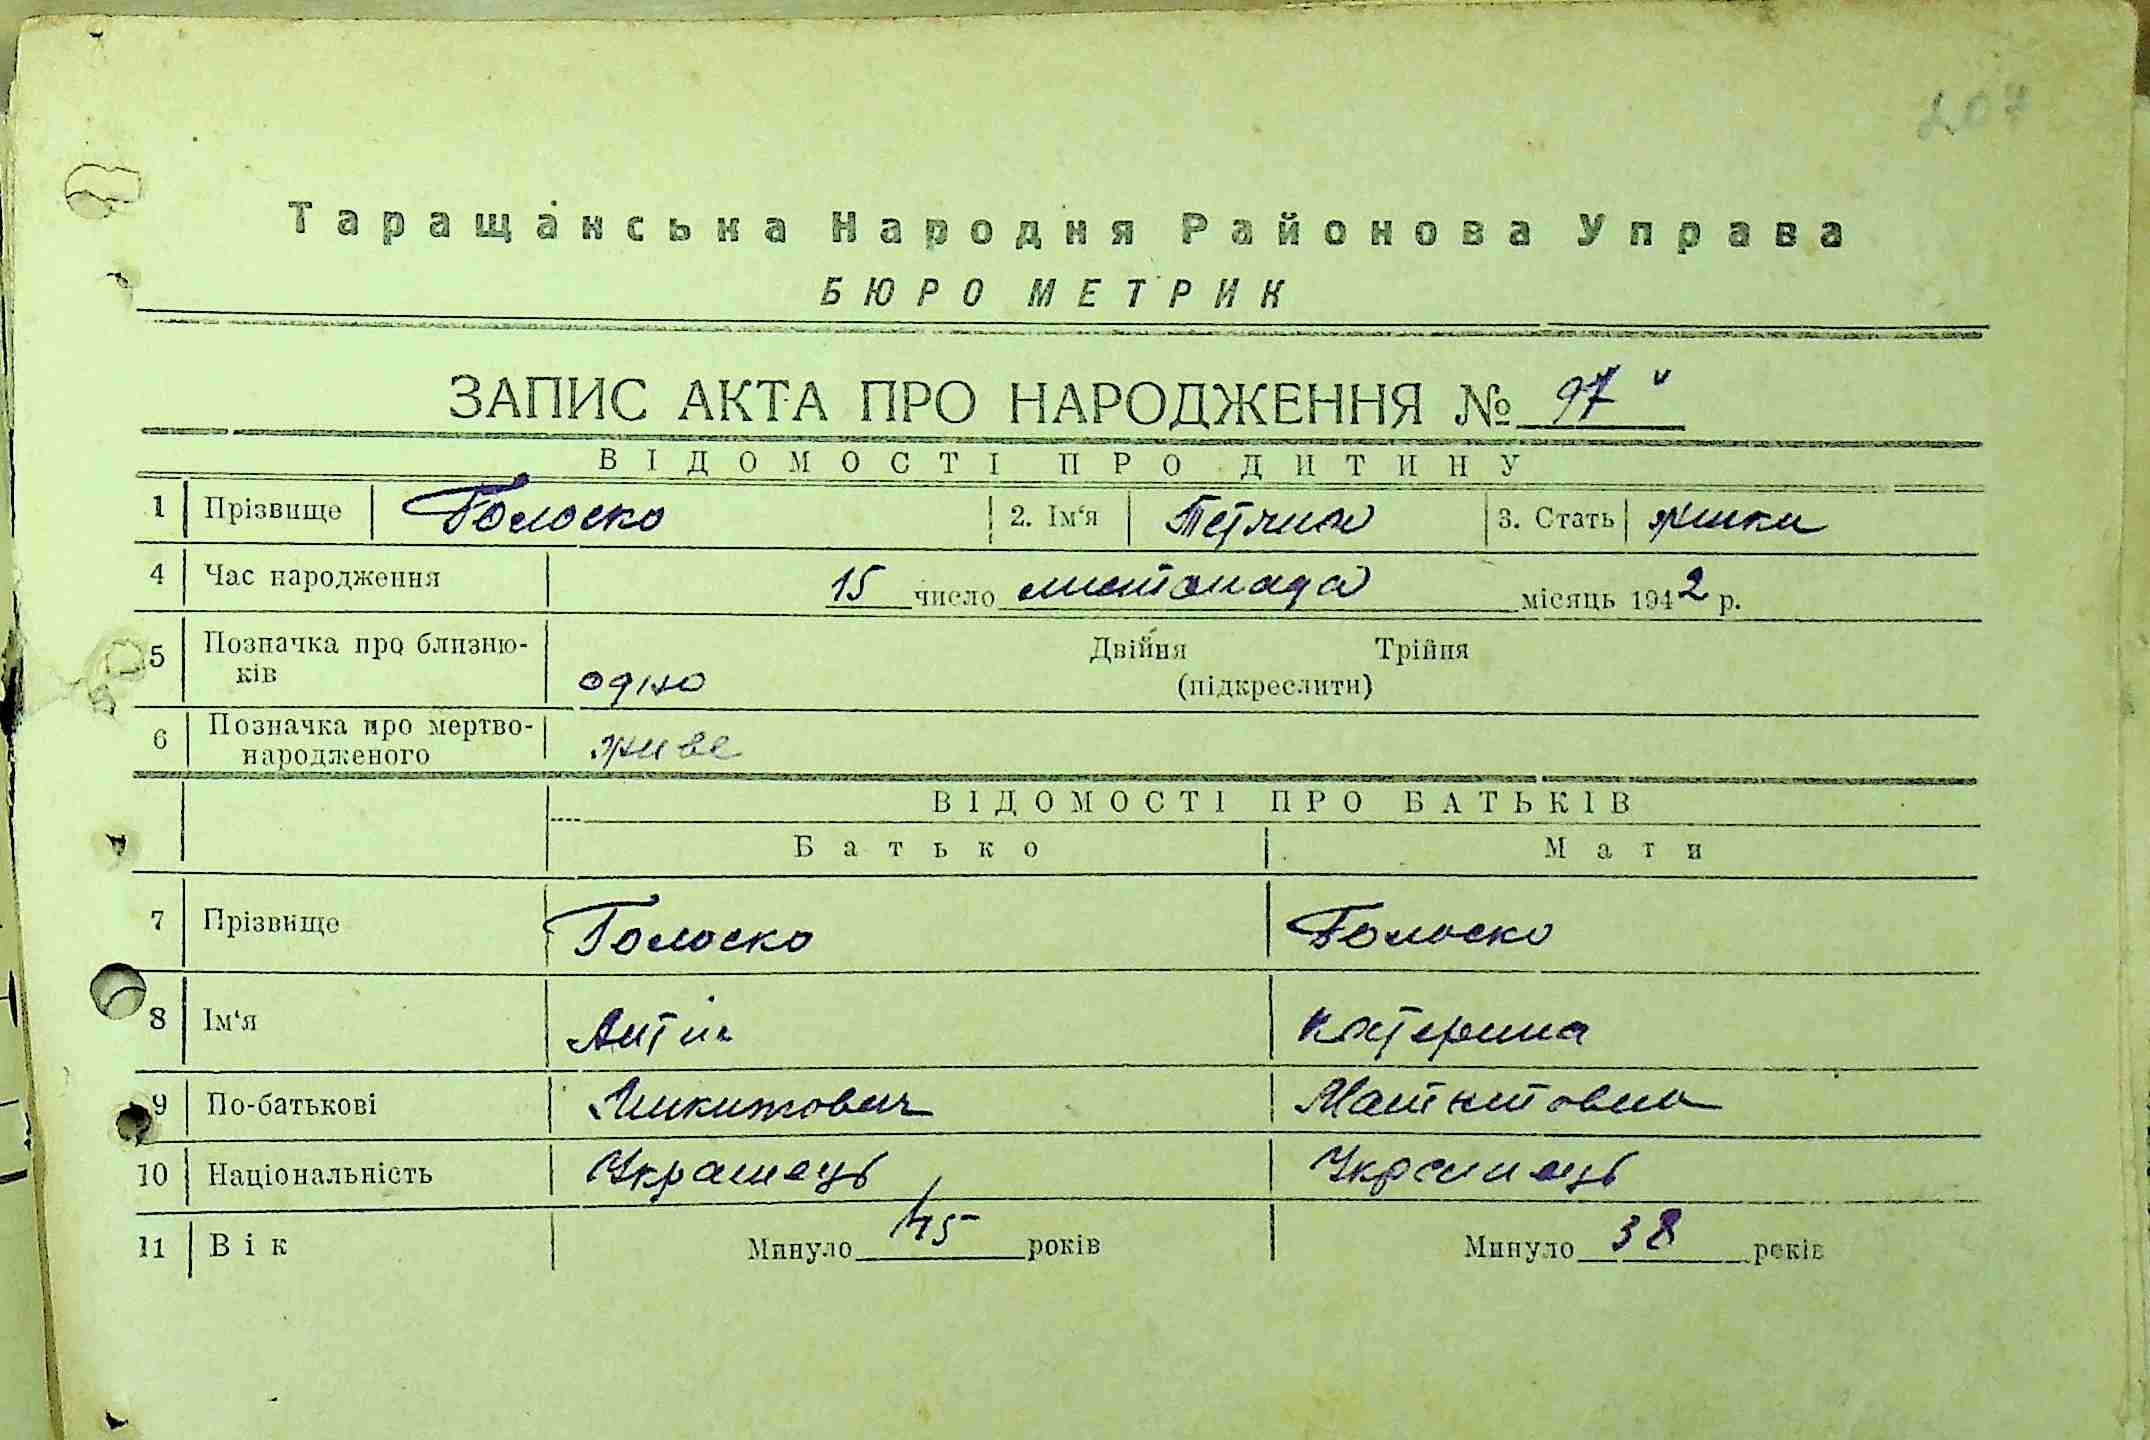 207
Таращанська Народня Районова Управа
БЮРО МЕТРИК
ЗАПИС АКТА ПРО НАРОДЖЕННЯ № 97
ВІДОМОСТІ ПРО ДИТИНУ
1 Прізвище Голоско 2. Ім‘я Тетяна 3. Стать жінки
4 Час народження 15 число листопада місяць 1942 р.
5 Позначка про близню- Двійня Трійня
ків одно (підкреслити)
6 Позначка про мертво-
народженого живе
ВІДОМОСТІ ПРО БАТЬКІВ
Батько Мати
7 Прізвище Голоско Голоско
8 Ім‘я Антін Катерина
9 По-батькові Микитович
10 Національність Українець Українець
11 Вік Минуло 45 років Минуло 38 років